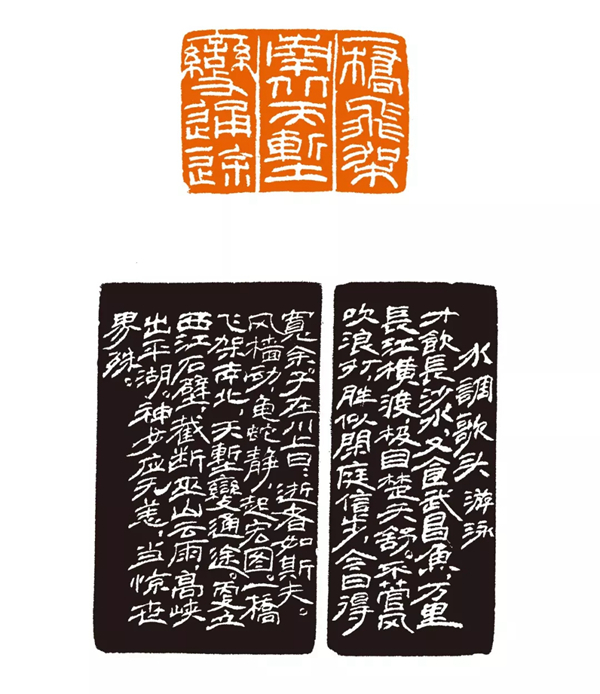 一橋飛架
南北天塹
變通途
水調歌头 游泳
才飲長沙水,又食武昌魚。万里
長江橫渡,极目楚天舒。不管风
吹浪打,胜似閒庭信步,今日得
寬余。子在川上曰:逝者如斯夫。
风檣动,龟蛇静,起宏图。一橋
飞架南北,天塹變通途。更立
西江石壁,截断巫山云雨,高峡
出平湖。神女应无恙,当惊世
界殊。